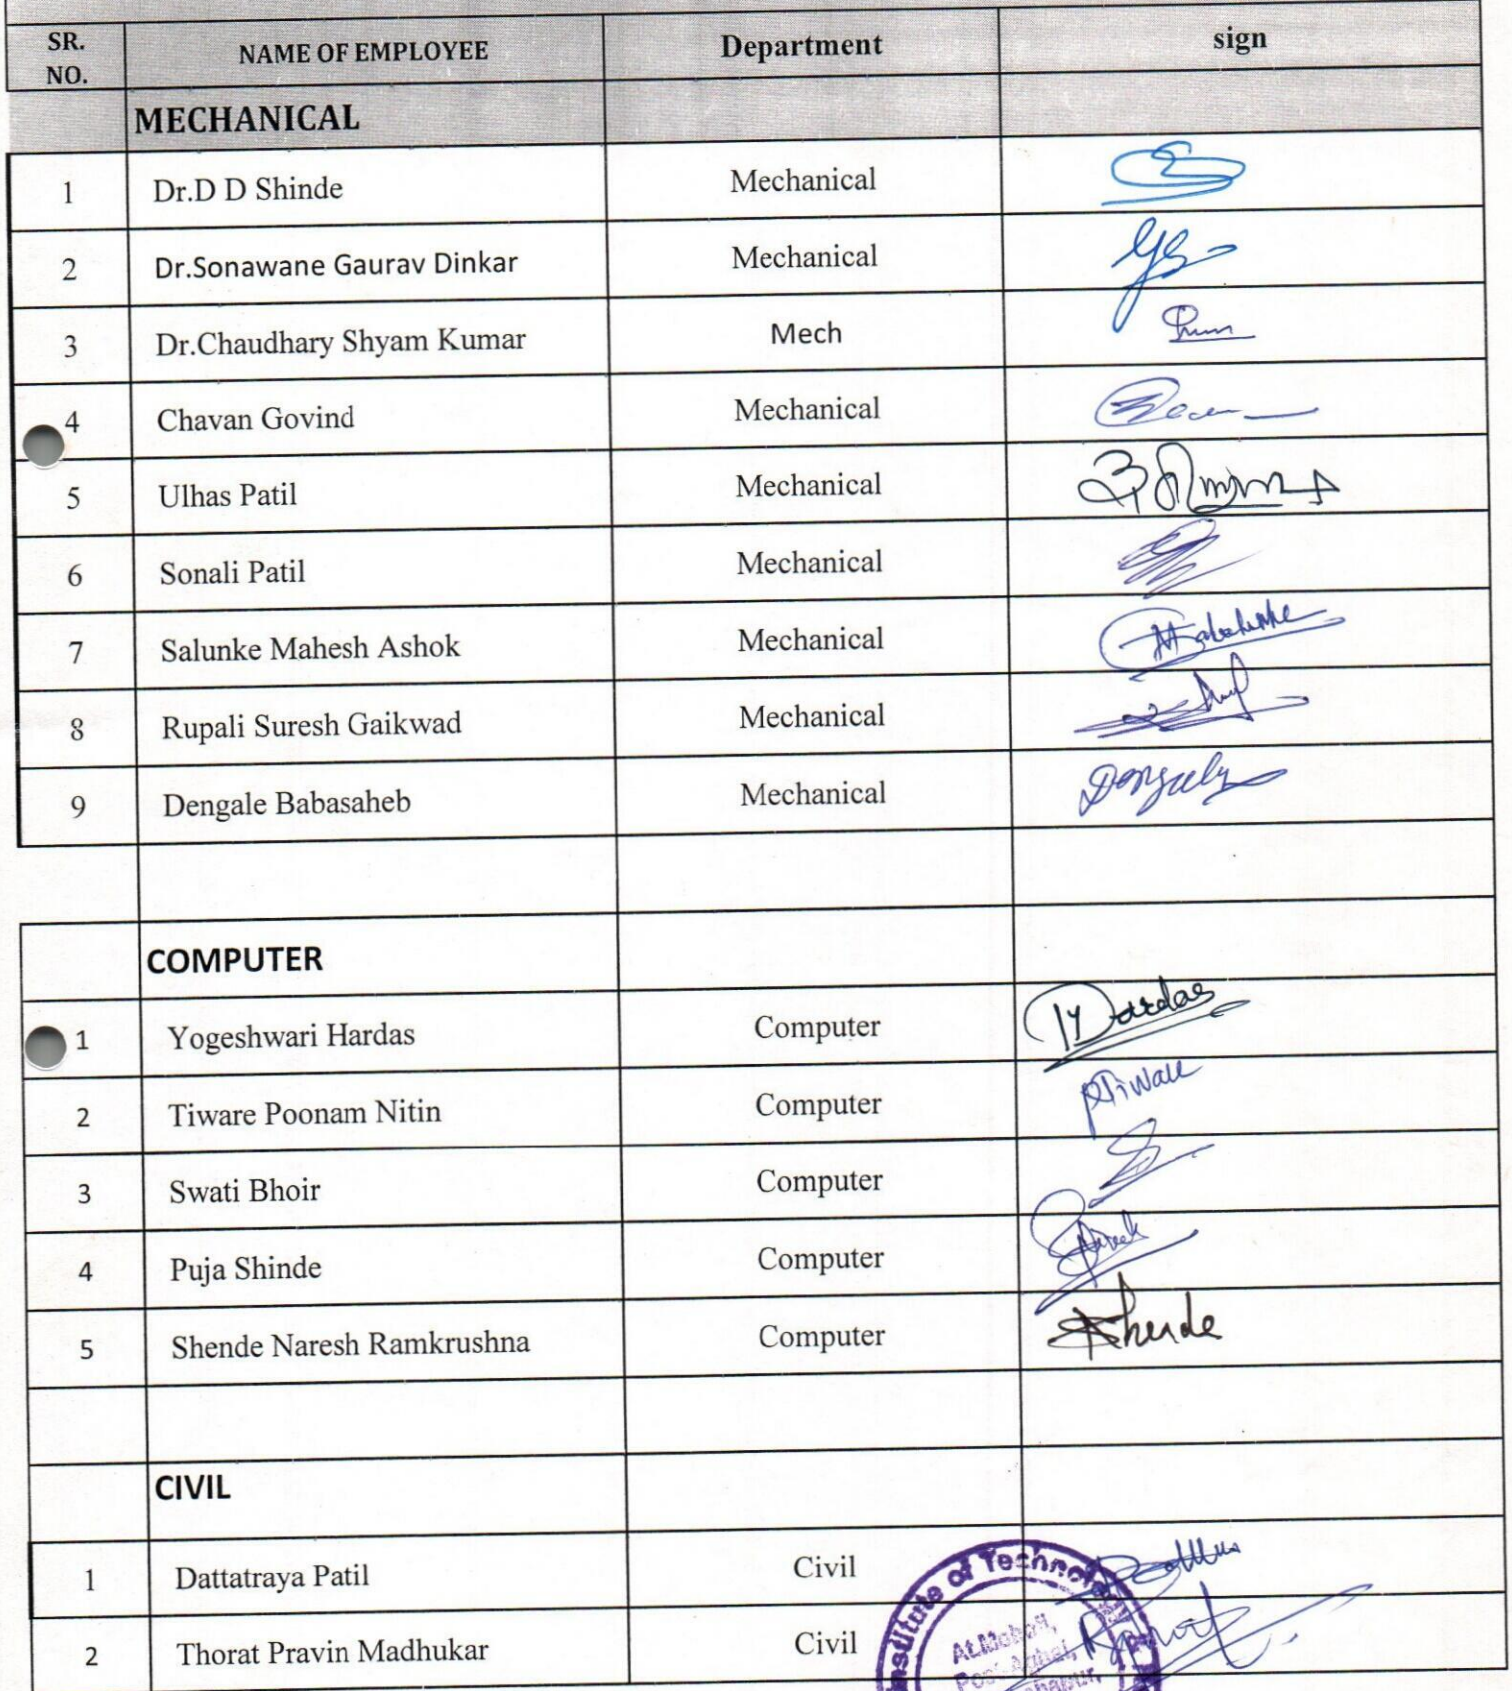 SR. NO. NAME OF EMPLOYEE Department sign
MECHANICAL
1 Dr.D D Shinde Mechanical
2 Dr.Sonawane Gaurav Dinkar Mechanical
3 Dr.Chaudhary Shyam Kumar Mech
4 Chavan Govind Mechanical
5 Ulhas Patil Mechanical
6 Sonali Patil Mechanical
7 Salunke Mahesh Ashok Mechanical
8 Rupali Suresh Gaikwad Mechanical
9 Dengale Babasaheb Mechanical
COMPUTER
1 Yogeshwari Hardas Computer
2 Tiware Poonam Nitin Computer
3 Swati Bhoir Computer
4 Puja Shinde Computer
5 Shende Naresh Ramkrushna Computer Shende
CIVIL
1 Dattatraya Patil Civil
2 Thorat Pravin Madhukar Civil
of